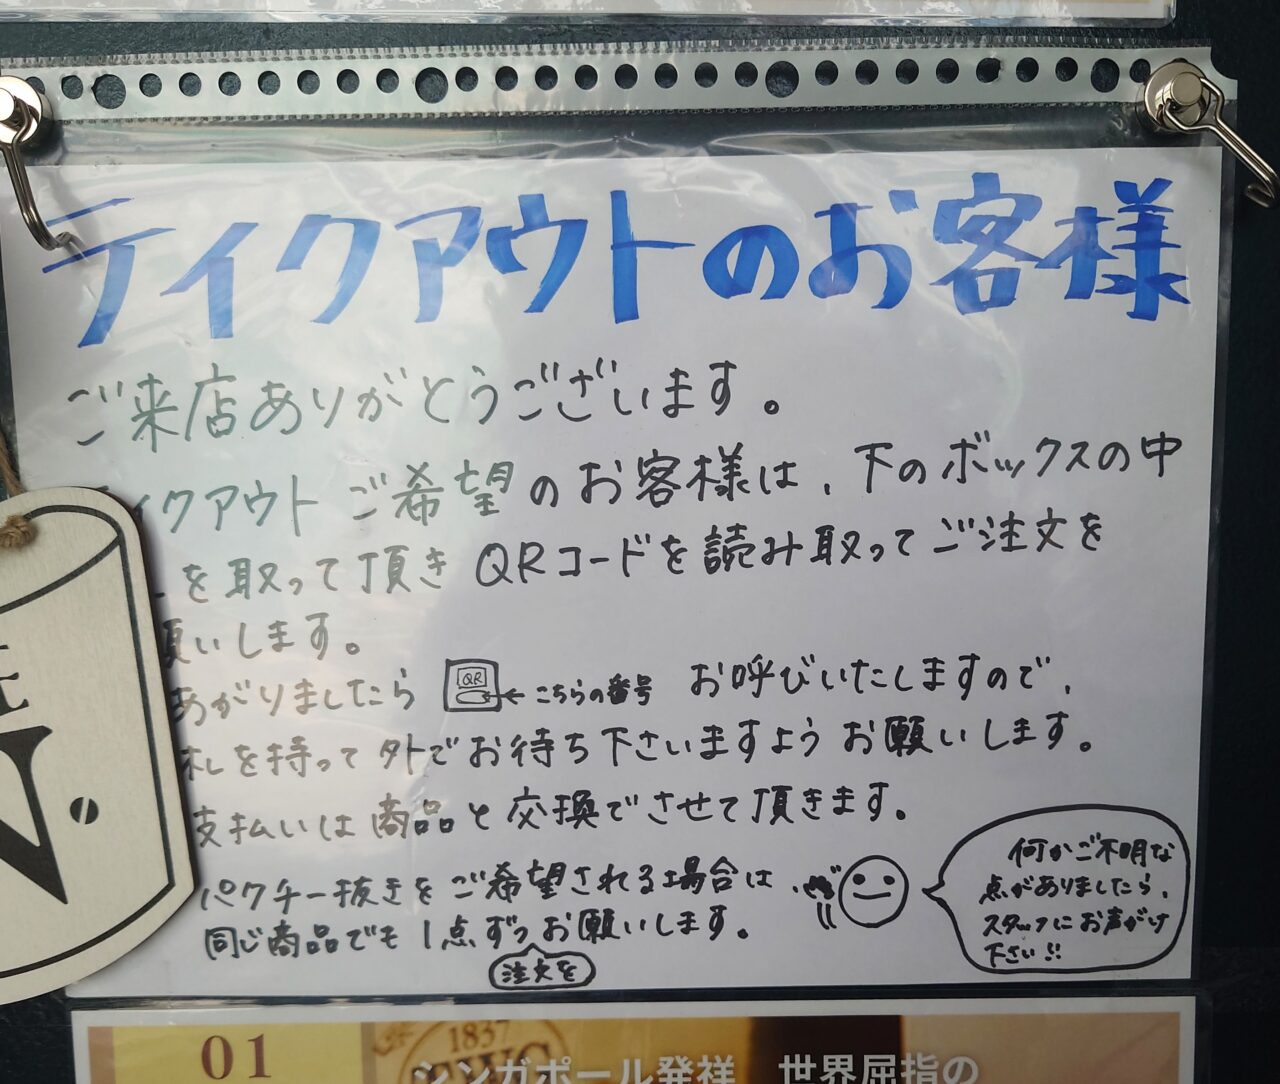 ティクアウトのお客様
ご来店ありがとうございます。
ィクアウト ご希望のお客様は、下のボックスの中
を取って頂き QRコードを読み取ってご注文を
願いします。
あがりましたら QR ←こちらの番号 お呼びいたしますので、
札を持って外でお待ち下さいますようお願いします。
支払いは商品と交換でさせて頂きます。
パクチー抜きをご希望される場合は、
同じ商品でも1点ずつお願いします。
注文を
何かご不明な
点がありましたら、
スタッフにお声がけ
下さい!!
E
N.
01
1837
TWG
シンガポール発祥 世界屈指の